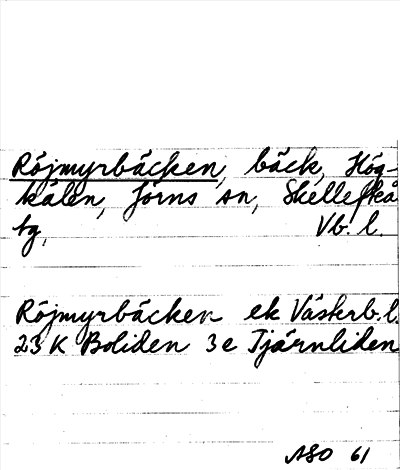 Röjmyrbäcken, bäck, Hög-
kålen, Jörns sn, Skellefteå
tg, Vb. l.
Röjmyrbäcken ek Västerb. l.
23 K Boliden 3e Tjärnliden
ASO 61